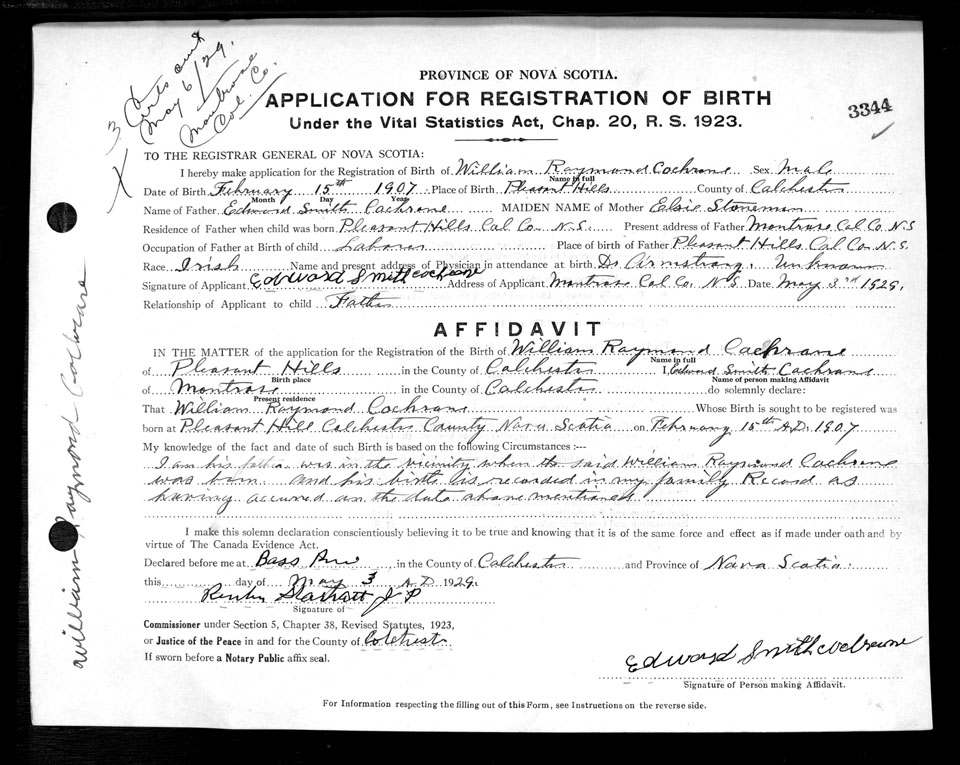 3 Certs sent
May 6/29.
Montrose
Col. Co.
X
PROVINCE OF NOVA SCOTIA.
APPLICATION FOR REGISTRATION OF BIRTH
Under the Vital Statistics Act, Chap. 20, R. S. 1923.
3344
TO THE REGISTRAR GENERAL OF NOVA SCOTIA:
I hereby make application for the Registration of Birth of William Raymond Cochrane Sex Male
Name in full
Date of Birth February 15th 1907 Place of Birth Pleasant Hills County of Colchester
Month Day Year
Name of Father Edward Smith Cochrane MAIDEN NAME of Mother Elsie Stoneman
Residence of Father when child was born Pleasant Hills Col Co. N. S. Present address of Father Montrose Col Co N.S
Occupation of Father at Birth of child Laborer Place of birth of Father Pleasant Hills Col Co N.S.
Race Irish Name and present address of Physician in attendance at birth Dr Armstrong. Unknown
Signature of Applicant Edward Smith cochrane Address of Applicant Montrose Col Co, N.S Date May 3rd 1929.
Relationship of Applicant to child Father
AFFIDAVIT
IN THE MATTER of the application for the Registration of the Birth of William Raymond Cochrane
Name in full
of Pleasant Hills in the County of Colchester I, Edward Smith Cochrane
Birth place Name of person making Affidavit
of Montrose in the County of Colchester do solemnly declare:
Present residence
That William Raymond Cochrane Whose Birth is sought to be registered was
born at Pleasant Hill Colchester County Nova Scotia on February 15th A.D. 1907
My knowledge of the fact and date of such Birth is based on the following Circumstances :--
I am his father was in the vicinity when the said William Raymond Cochrane
was born and his birth is recorded in my family Record as
having occured on the date above mentioned
I make this solemn declaration conscientiously believing it to be true and knowing that it is of the same force and effect as if made under oath and by
virtue of The Canada Evidence Act.
Declared before me at Bass River in the County of Colchester and Province of Nova Scotia.
this day of May 3 A.D. 1929.
J P
Signature of
Commissioner under Section 5, Chapter 38, Revised Statutes, 1923,
or Justice of the Peace in and for the County of Colchester
If sworn before a Notary Public affix seal.
Edward Smith cochrane
Signature of Person making Affidavit.
For Information respecting the filling out of this Form, see Instructions on the reverse side.
William Raymond Cochrane